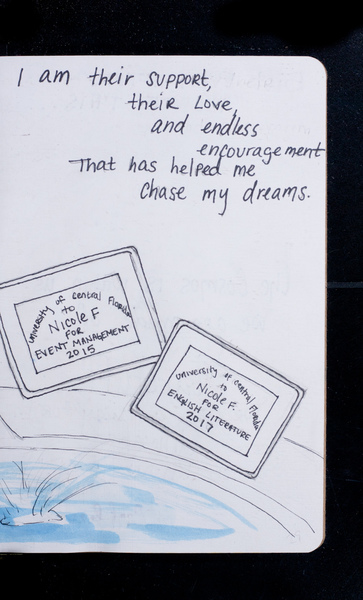 I am their support,
their Love,
and endless
encouragement
That has helped me
chase my dreams.
University of Central Florida
to
Nicole F
FOR
EVENT MANAGEMENT
2015
University of Central Florida
to
Nicole F.
FOR
ENGLISH LITERATURE
2017